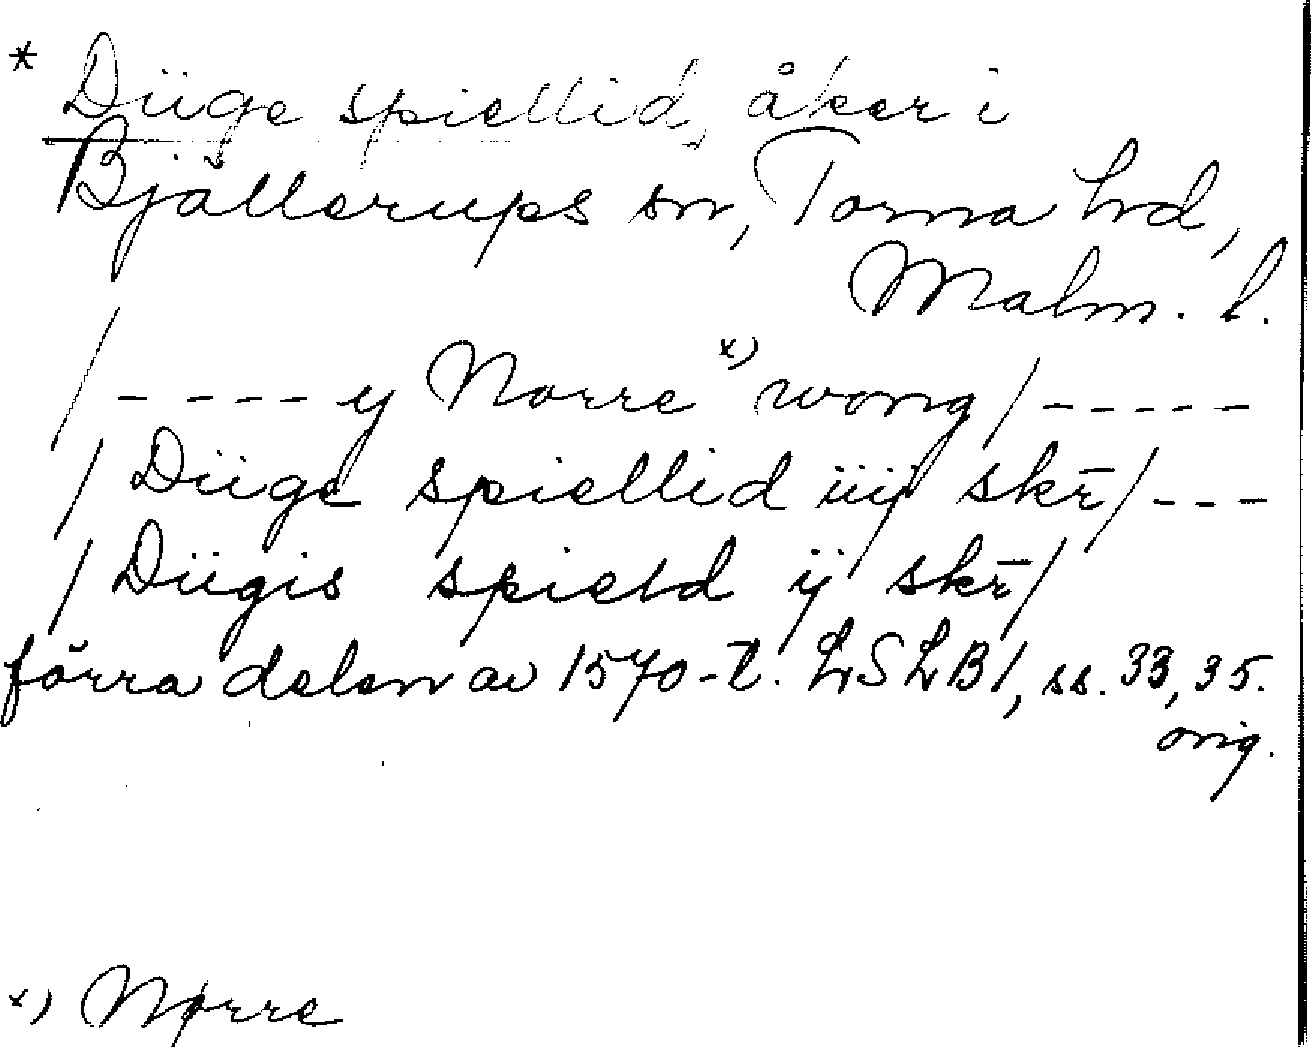 * Düge spiellid, åker i
Bjällerups sn, Torna hrd,
Malm. l.
/ - - - - y Norre x) wong / - - - - -
/ Düge spiellid iiij skr̄ / - - -
/ Dügis spield ij skr̄ /
förra delen av 1570-t. LSLB1, ss. 33, 35.
orig.
x) Nørre